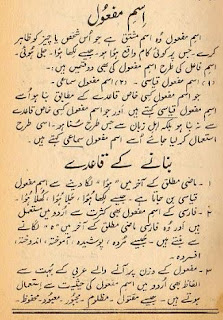 اسم مفعول
اسم مفعول وہ اسم مشتق ہے جو اُس شخص یا چیز کو ظاہر
کرے۔ جس پر کوئی کام واقع ہوا ہو۔ جیسے لکھا ہوا۔ جلی ہوئی۔
اسم فاعل کی طرح اسم مفعول کی بھی دو قسمیں ہیں:۔
(۱) اسم مفعول قیاسی۔ (۲) اسم مفعول سماعی۔
جو اسم مفعول کسی خاص قاعدے کے مطابق بنا ہو اُسے
اسم مفعول قیاسی کہتے ہیں۔ اور جو اسم مفعول کسی خاص قاعدے سے
نہ بنا ہو بلکہ اہل زبان سے جس طرح سنا ہو۔ اسی طرح
استعمال کر لیا جائے اُسے اسم مفعول سماعی کہتے ہیں۔
بنانے کے قاعدے
۱۔ ماضی مطلق کے آخر میں "ہوا" لگا دینے سے اسم مفعول
قیاسی بن جاتا ہے۔ جیسے لکھا ہوا، جلا ہوا، کھلا ہوا۔
۲۔ فارسی کے اسم مفعول بھی کثرت سے اُردو میں مستعمل
ہیں۔ اور وہ فارسی ماضی مطلق کے آخر میں "ہ" لگانے
سے بنتے ہیں۔ جیسے مُردہ، پوشیدہ، آموختہ، اندوختہ،
افسردہ۔
۳۔ مفعول کے وزن پر آنے والے عربی کے بہت سے
الفاظ بھی اُردو میں اسم مفعول کی حیثیت سے استعمال
ہوتے ہیں۔ جیسے مقتول۔ مظلوم۔ مجبور۔ معبود۔ محفوظ۔